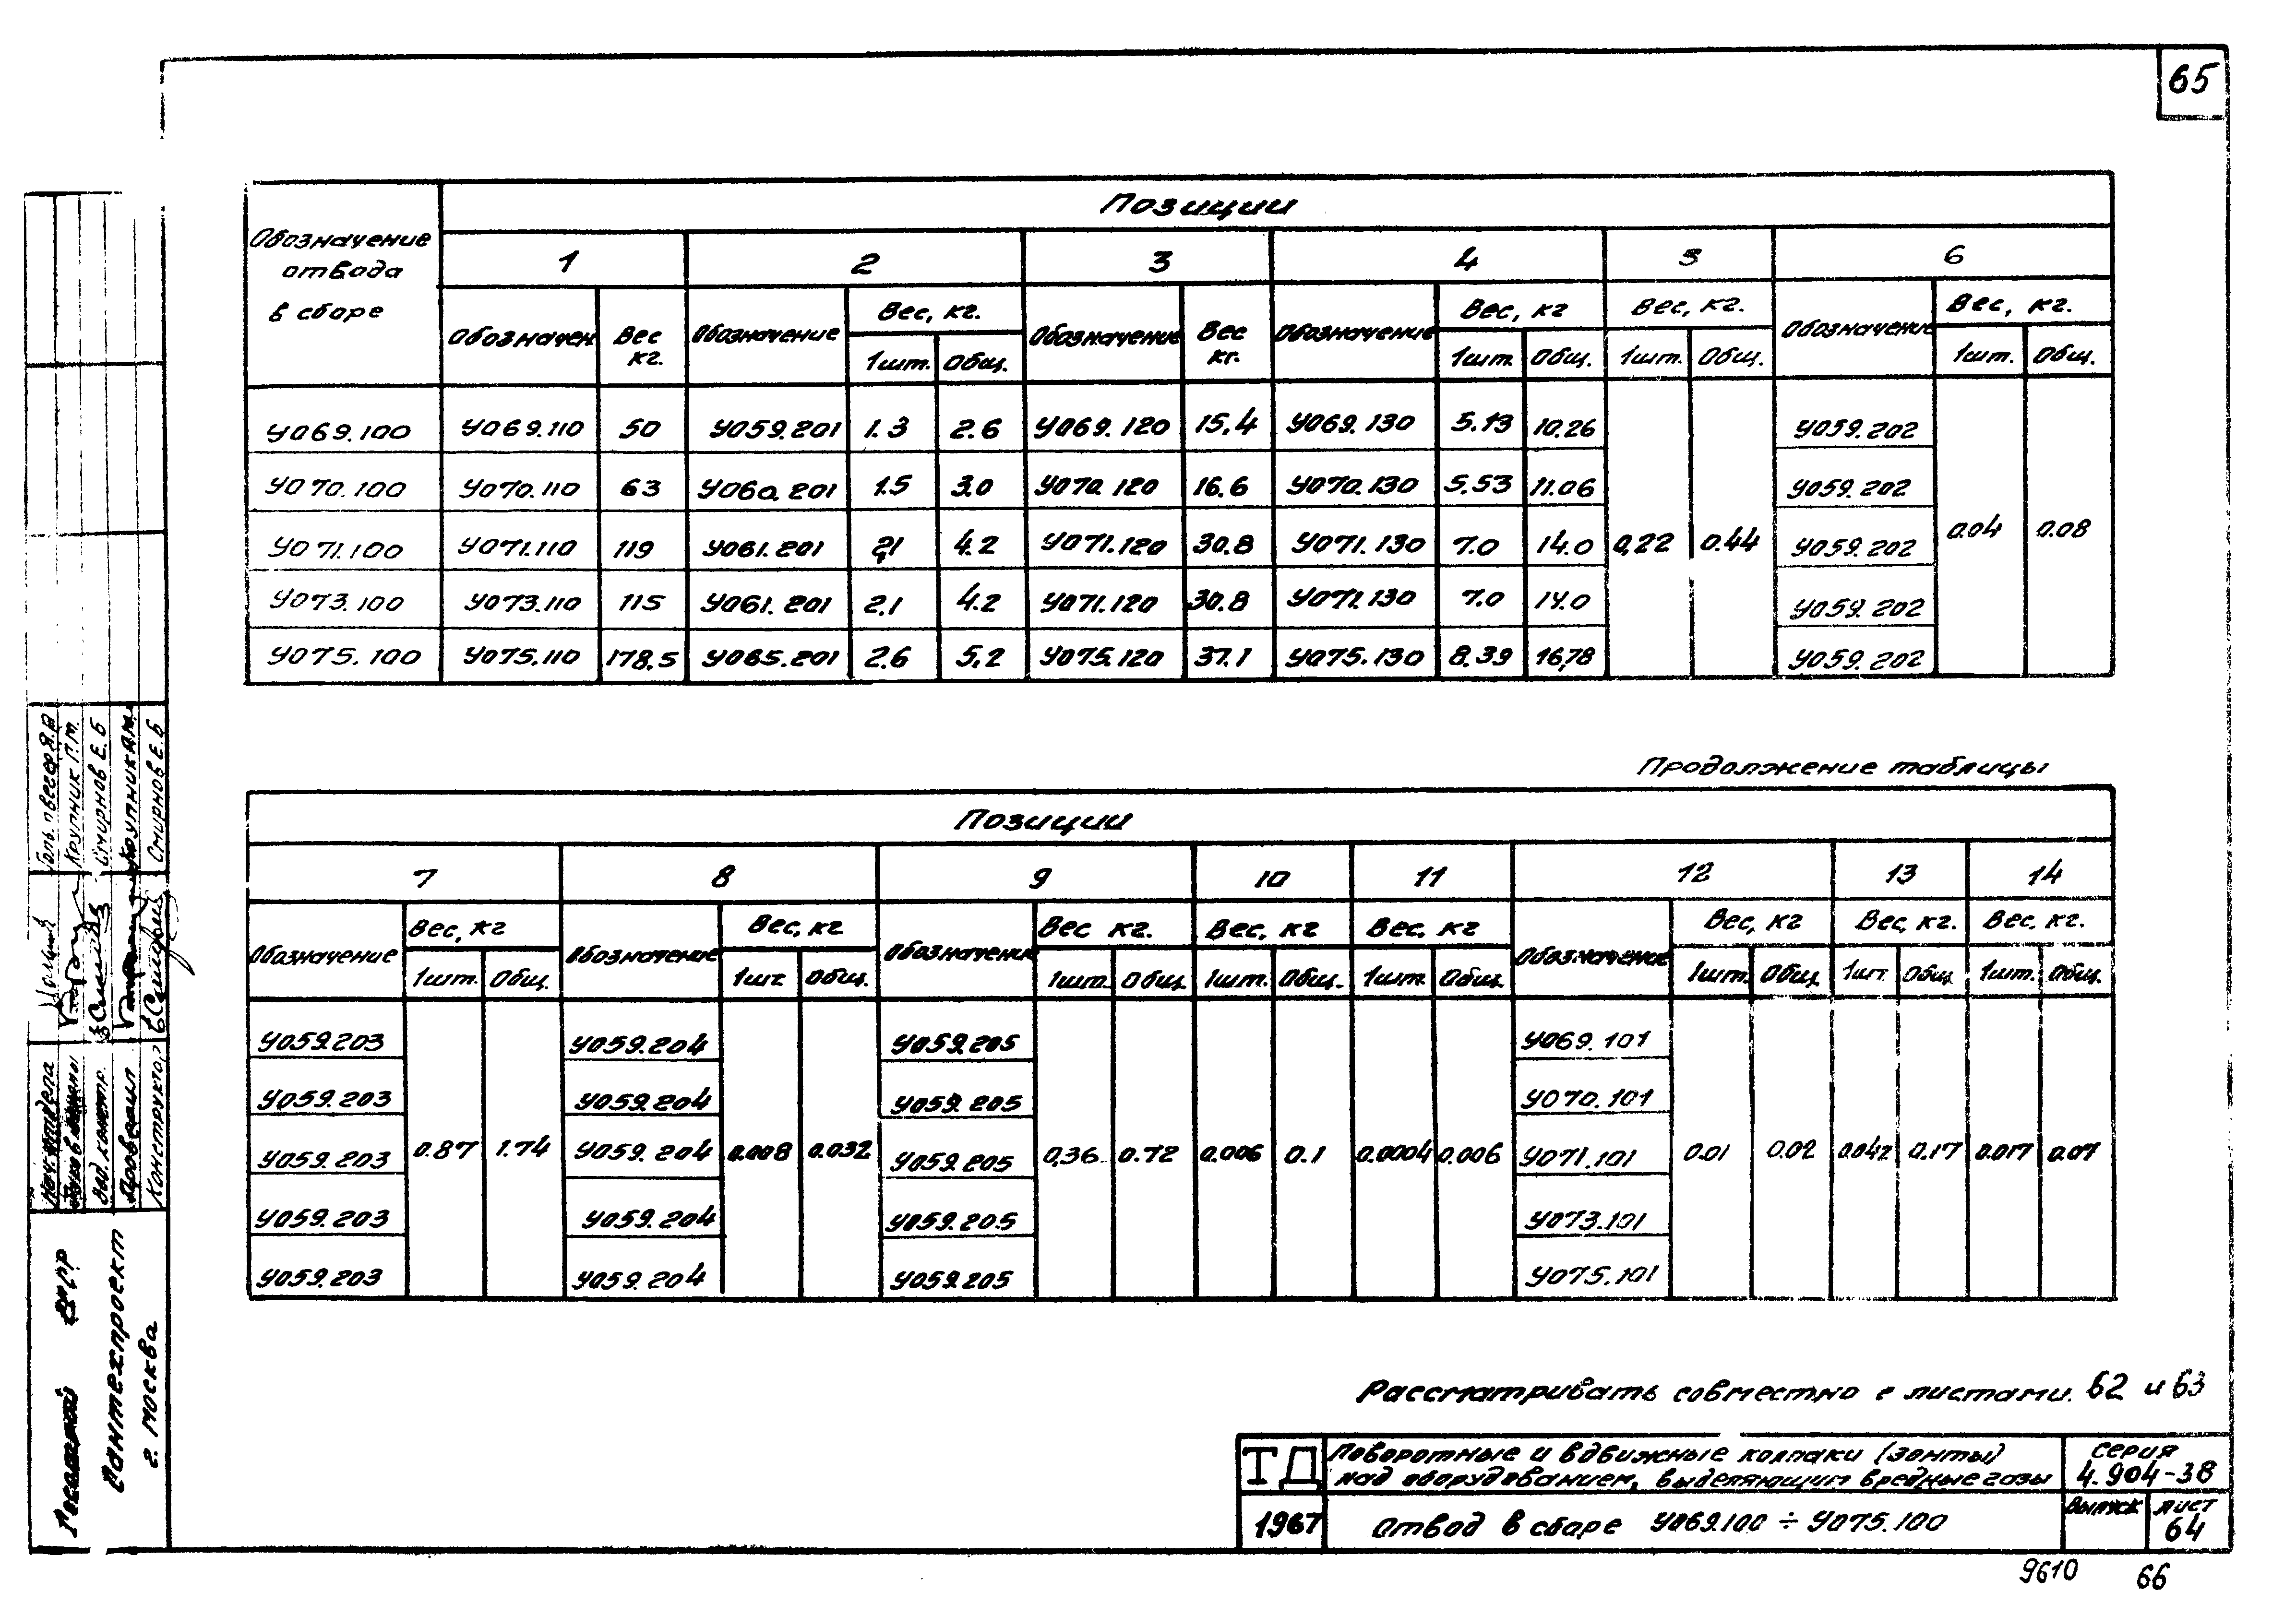 65
Позиции
Обозначение отвода в сборе
1 2 3 4 5 6
Обозначен Вес кг. Обозначение Вес, кг. Обозначение Вес кг. Обозначение Вес, кг Вес, кг. Обозначение Вес, кг.
1шт. Общ. 1шт. Общ. 1шт. Общ. 1шт. Общ.
У069.100 У069.110 50 У059.201 1.3 2.6 У069.120 15,4 У069.130 5.13 10.26 У059.202
У070.100 У070.110 63 У060.201 1.5 3.0 У070.120 16.6 У070.130 5.53 11.06 У059.202
У071.100 У071.110 119 У061.201 2,1 4.2 У071.120 30.8 У071.130 7.0 14.0 0,22 0.44 У059.202 0.04 0.08
У073.100 У073.110 115 У061.201 2.1 4.2 У071.120 30.8 У071.130 7.0 14.0 У059.202
У075.100 У075.110 178,5 У065.201 2.6 5,2 У075.120 37.1 У075.130 8.39 16,78 У059.202
Продолжение таблицы
Позиции
7 8 9 10 11 12 13 14
Обозначение Вес, кг Обозначение Вес, кг Обозначение Вес кг. Вес, кг Вес, кг Обозначение Вес, кг Вес, кг. Вес, кг.
1шт. Общ. 1шт. Общ. 1шт. Общ. 1шт. Общ. 1шт. Общ. 1шт. Общ. 1шт. Общ. 1шт. Общ.
У059.203 У059.204 У059.205 У069.101
У059.203 У059.204 У059.205 У070.101
У059.203 0.87 1.74 У059.204 0.008 0.032 У059.205 0,36 0.72 0.006 0.1 0.0004 0.006 У071.101 0.01 0.02 0.042 0.17 0.017 0.07
У059.203 У059.204 У059.205 У073.101
У059.203 У059.204 У059.205 У075.101
Рассматривать совместно с листами. 62 и 63
ТД Поворотные и вдвижные колпаки (зонты) Серия
над оборудованием, выделяющим вредные газы 4.904-38
1967 Отвод в сборе У069.100 ÷ У075.100 Выпуск Лист
64
9610 66
Крупник Г.М.
Смирнов Е.Б
Смирнов Е.Б
Нач. отдела
Вед. констр.
Проверил
Конструктор
Сантехпроект
г. Москва